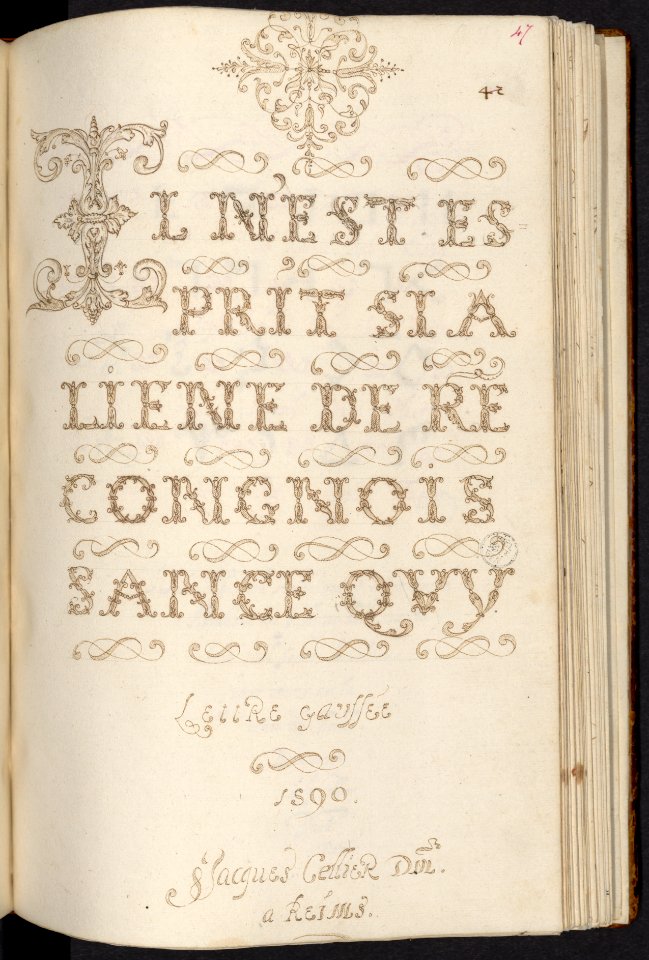 47
42
IL N'EST ES
PRIT SI A
LIENE DE RE
CONGNOIS
SANCE QVY
Lettre gaussée
1590.
Jacques Cellier
a Reims.